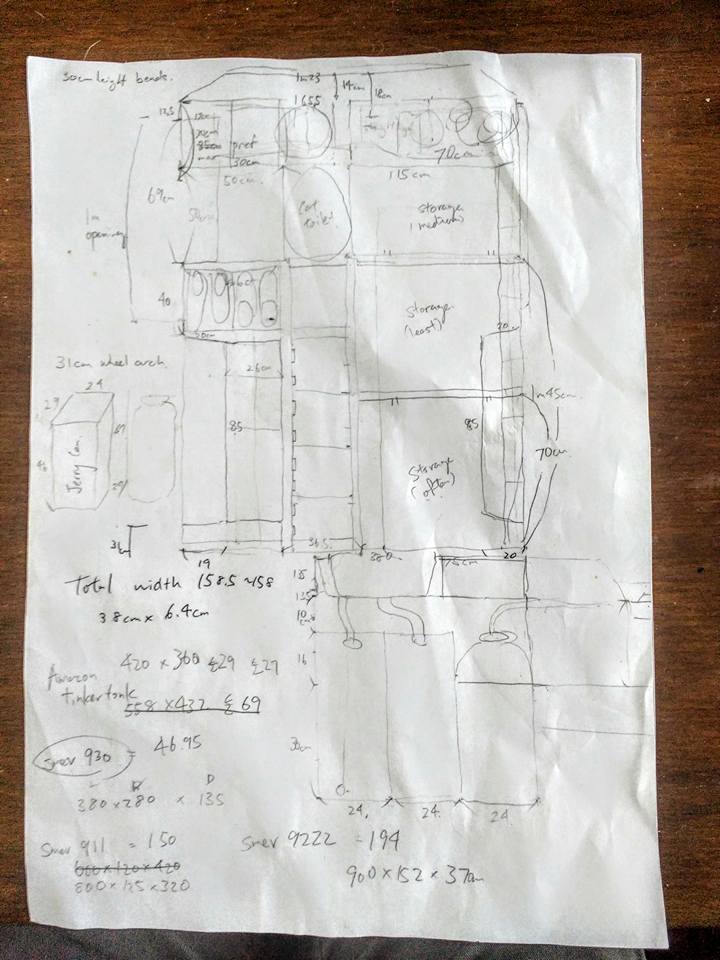 30cm height bends.
1m23
14cm
18cm
1655
13.5
pref
30cm
50cm.
70cm
115cm
69cm
1m
opening
Cat
toilet
Storage
(medium)
40
50cm
Storage
(least)
20
31cm wheel arch.
26cm
24
85
85
1m45cm
70cm
Jerry Can
Storage
(often)
19
36.5
380
20
Total width 158.5 ~158
38cm x 6.4cm
13.5
10
420 x 360 £29 £27
Amazon
tinkertank
558 x 432 £69
16
smev 930 = 46.95
30cm
D
380 x 280 x 135
24.
24.
24.
Smev 911 = 150
smev 9222 = 194
600 x 120 x 420
800 x 125 x 320
900 x 152 x 37cm